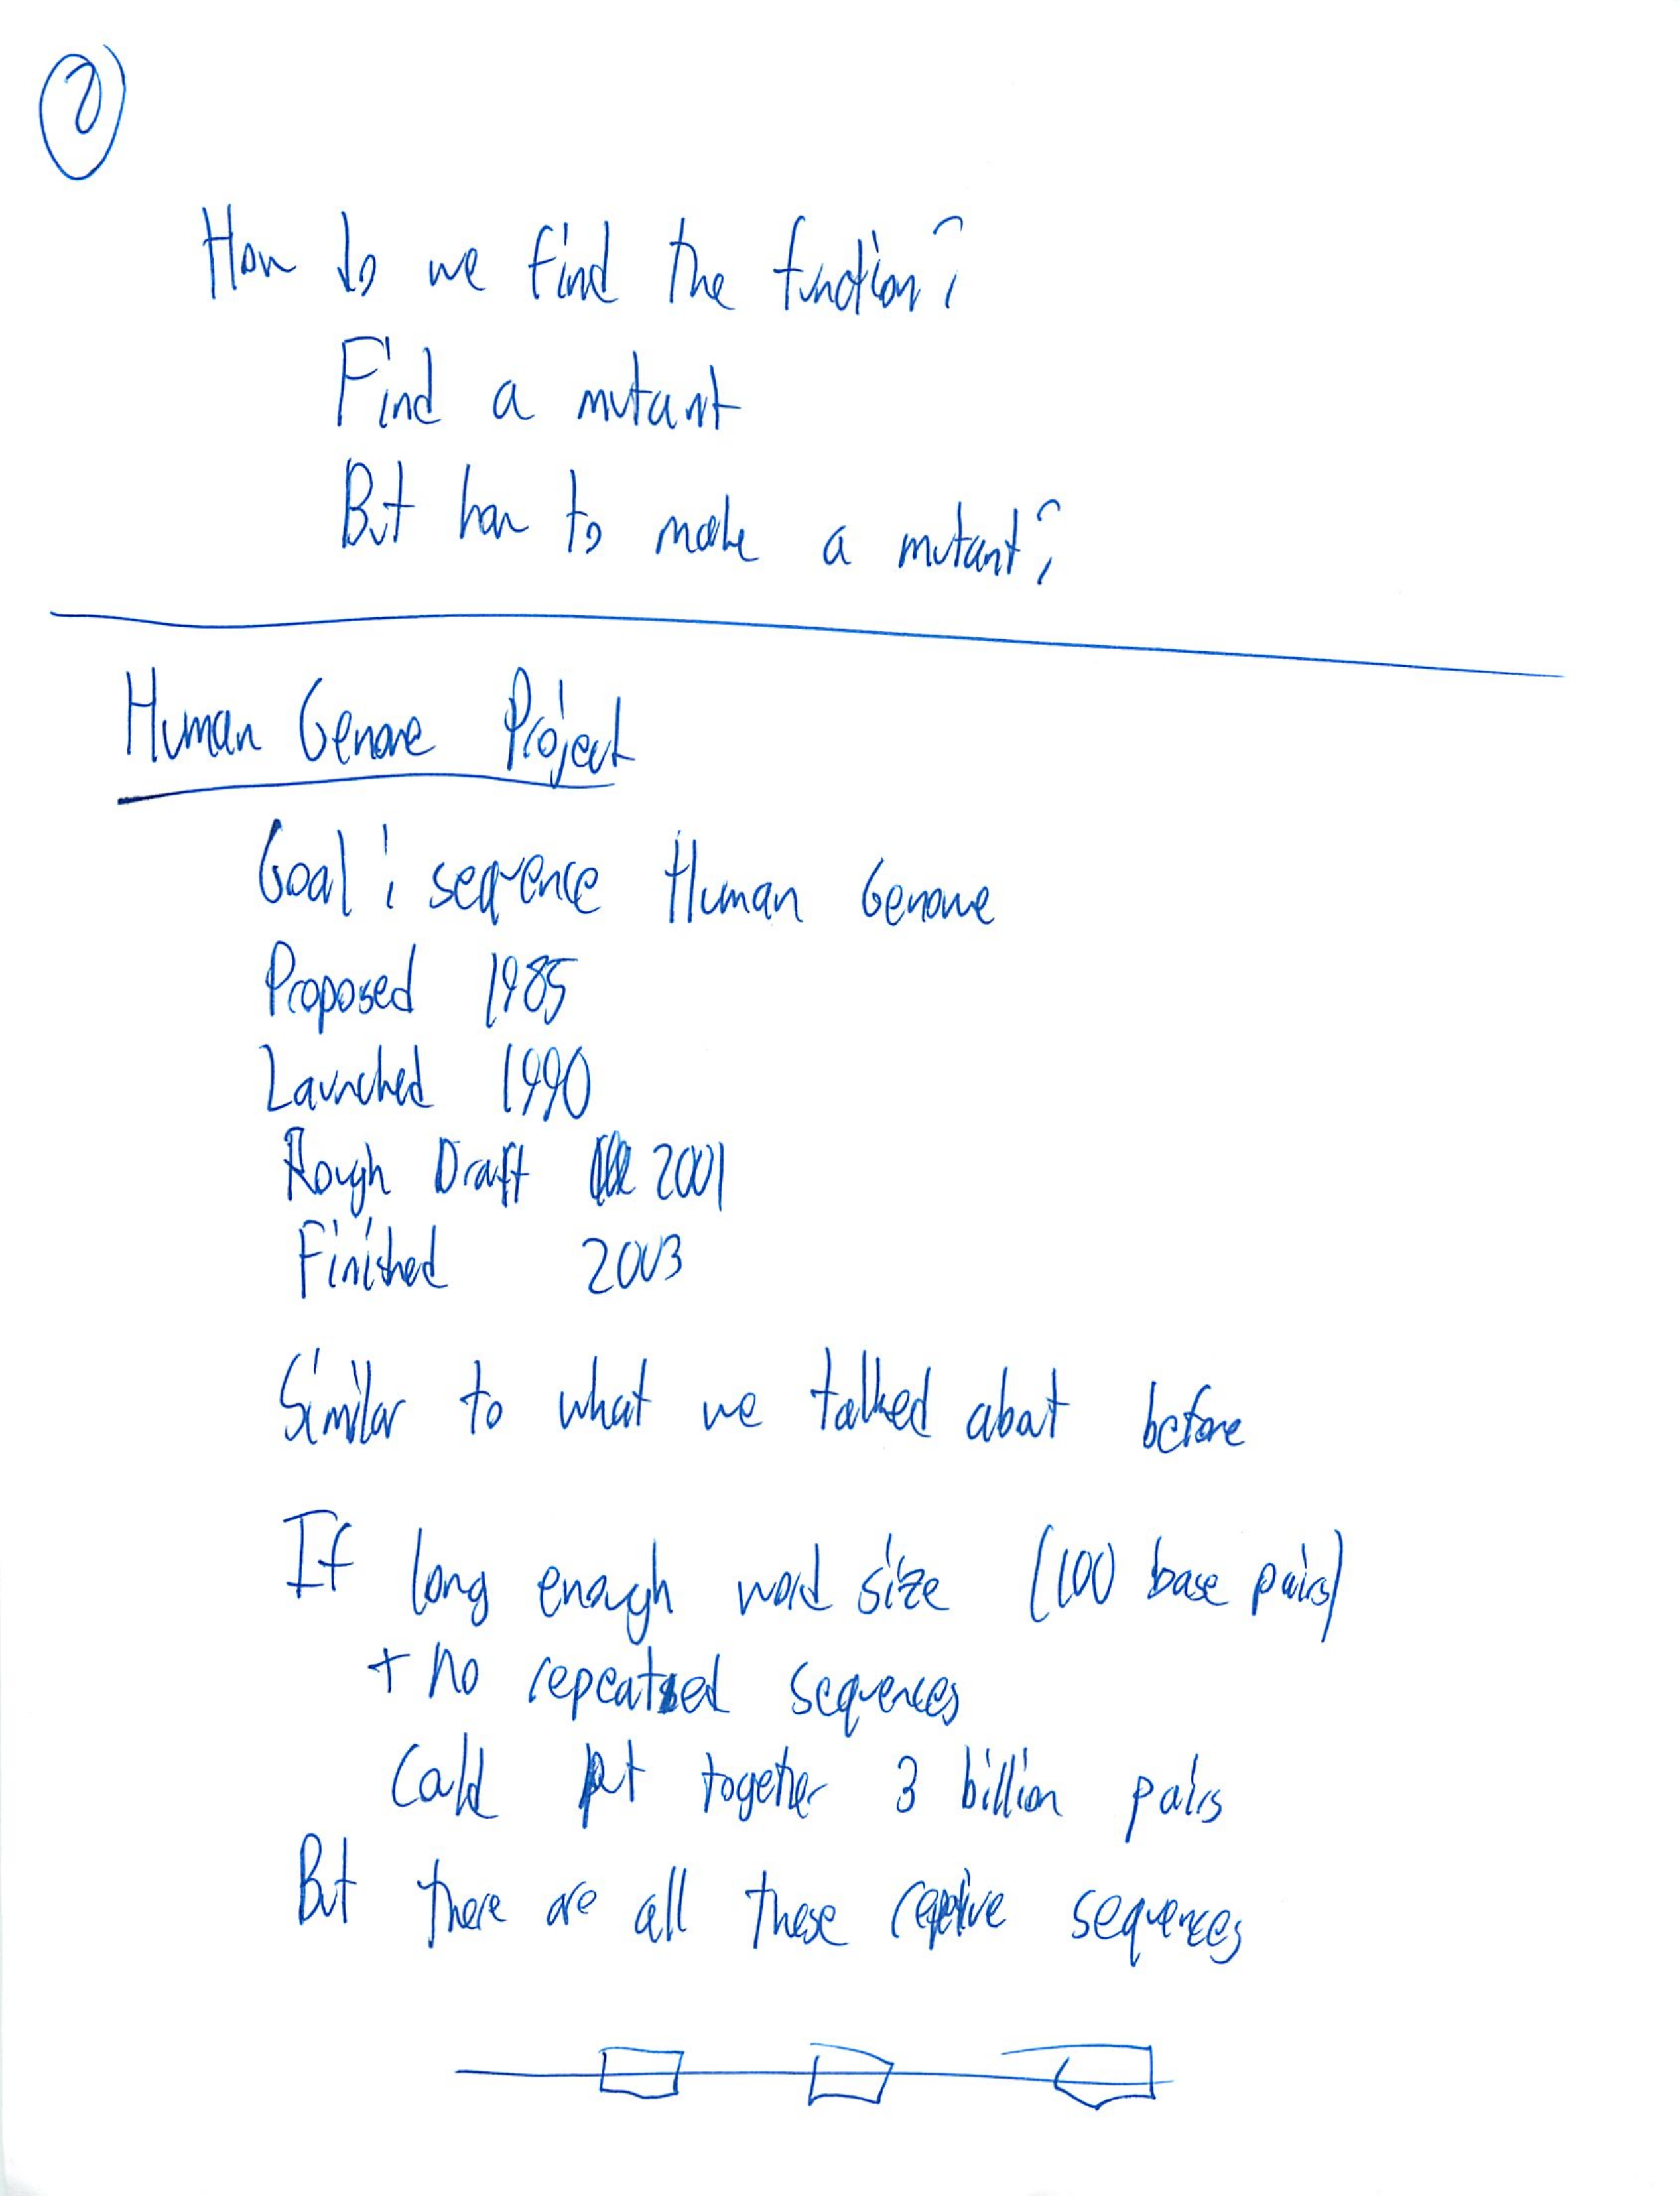 7
How do we find the function?
Find a mutant
But how to make a mutant?
Human Genome Project
Goal: sequence Human Genome
Proposed 1985
Launched 1990
Rough Draft 2001
Finished 2003
Similar to what we talked about before
If long enough word size (100 base pairs)
+ no repeated sequences
Could put together 3 billion pairs
But there are all these sequences